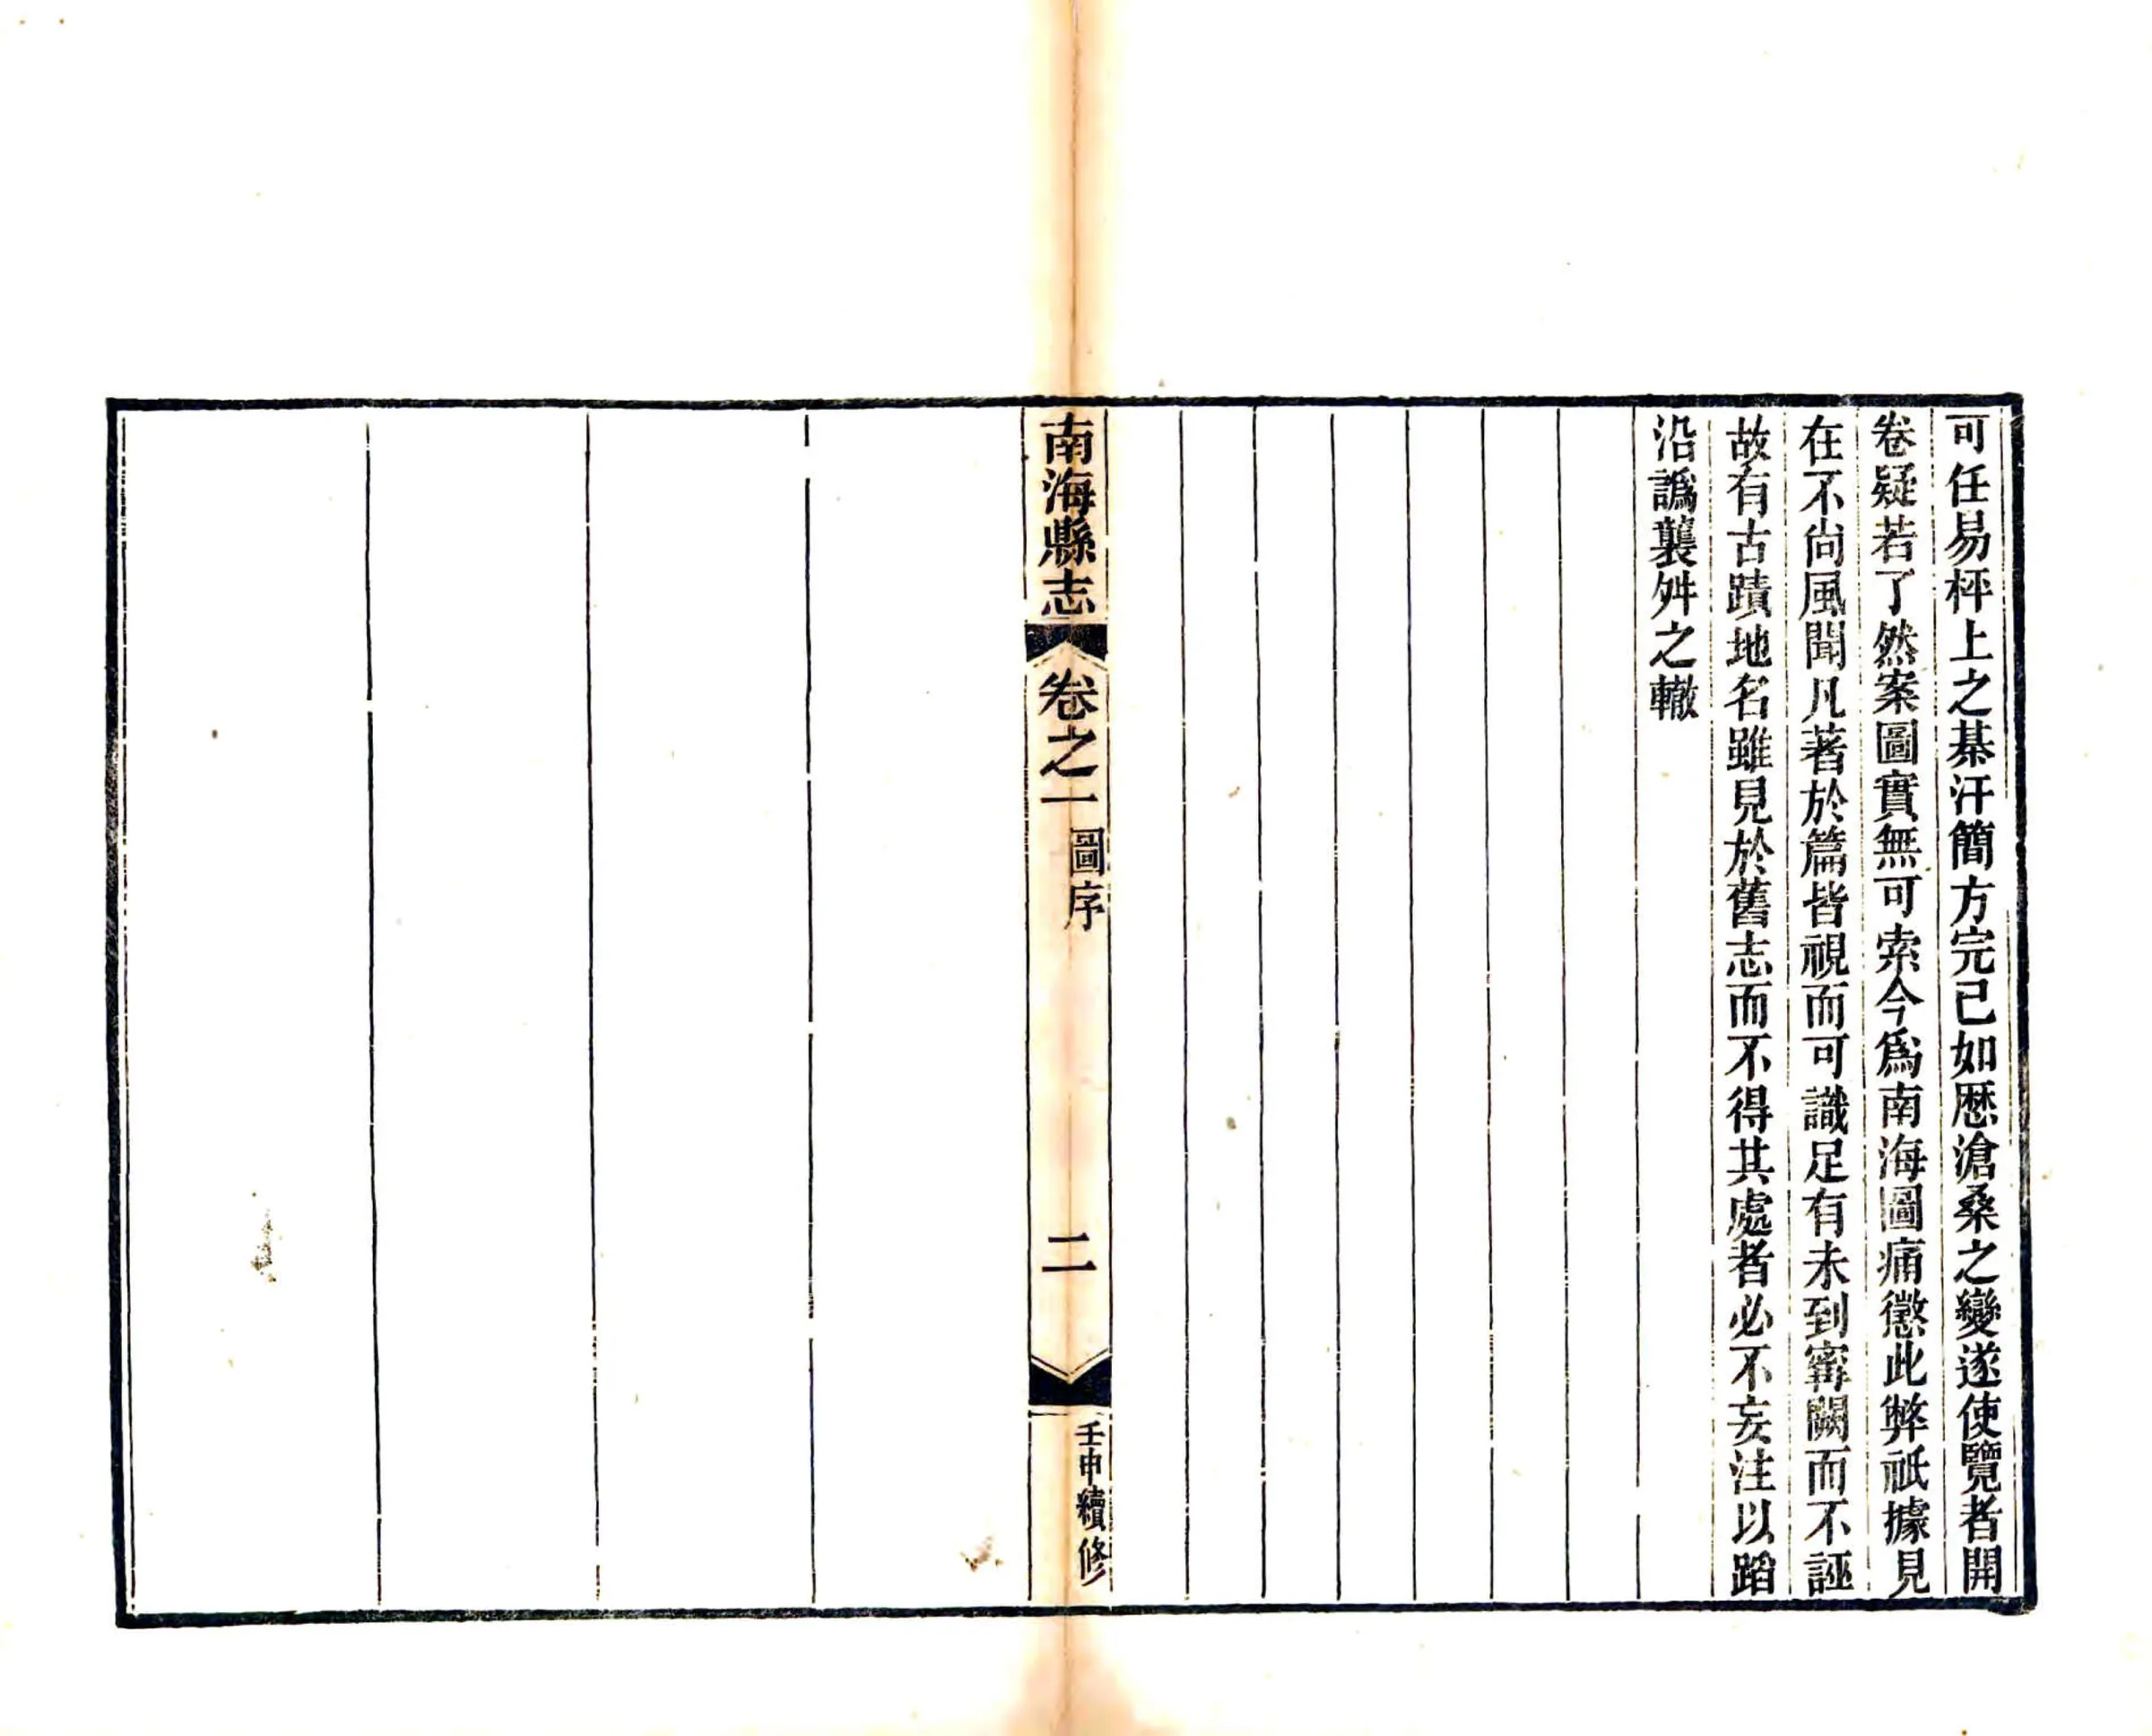 可任易枰上之棊汗簡方完已如厯滄桑之變遂使覽者開
卷疑若了然案圖實無可索今爲南海圖痛懲此弊祇據見
在不尚風聞凡著於篇皆視而可識足有未到寗闕而不誣
故有古蹟地名雖見於舊志而不得其處者必不妄注以蹈
沿譌襲舛之轍
南海縣志
卷之一
圖序
二
壬申續修